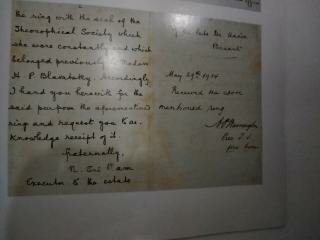 the ring with the seal of the
Theosophical Society which
she wore constantly and which
belonged previously to Madam
H. P. Blavatsky. Accordingly,
I hand you herewith for the
said purpose the aforementioned
ring and request you to ac-
knowledge receipt of it.
Fraternally,
N. Sri Ram
Executor to the estate
of the late Dr. Annie
Besant
May 29th
Received the above
mentioned ring